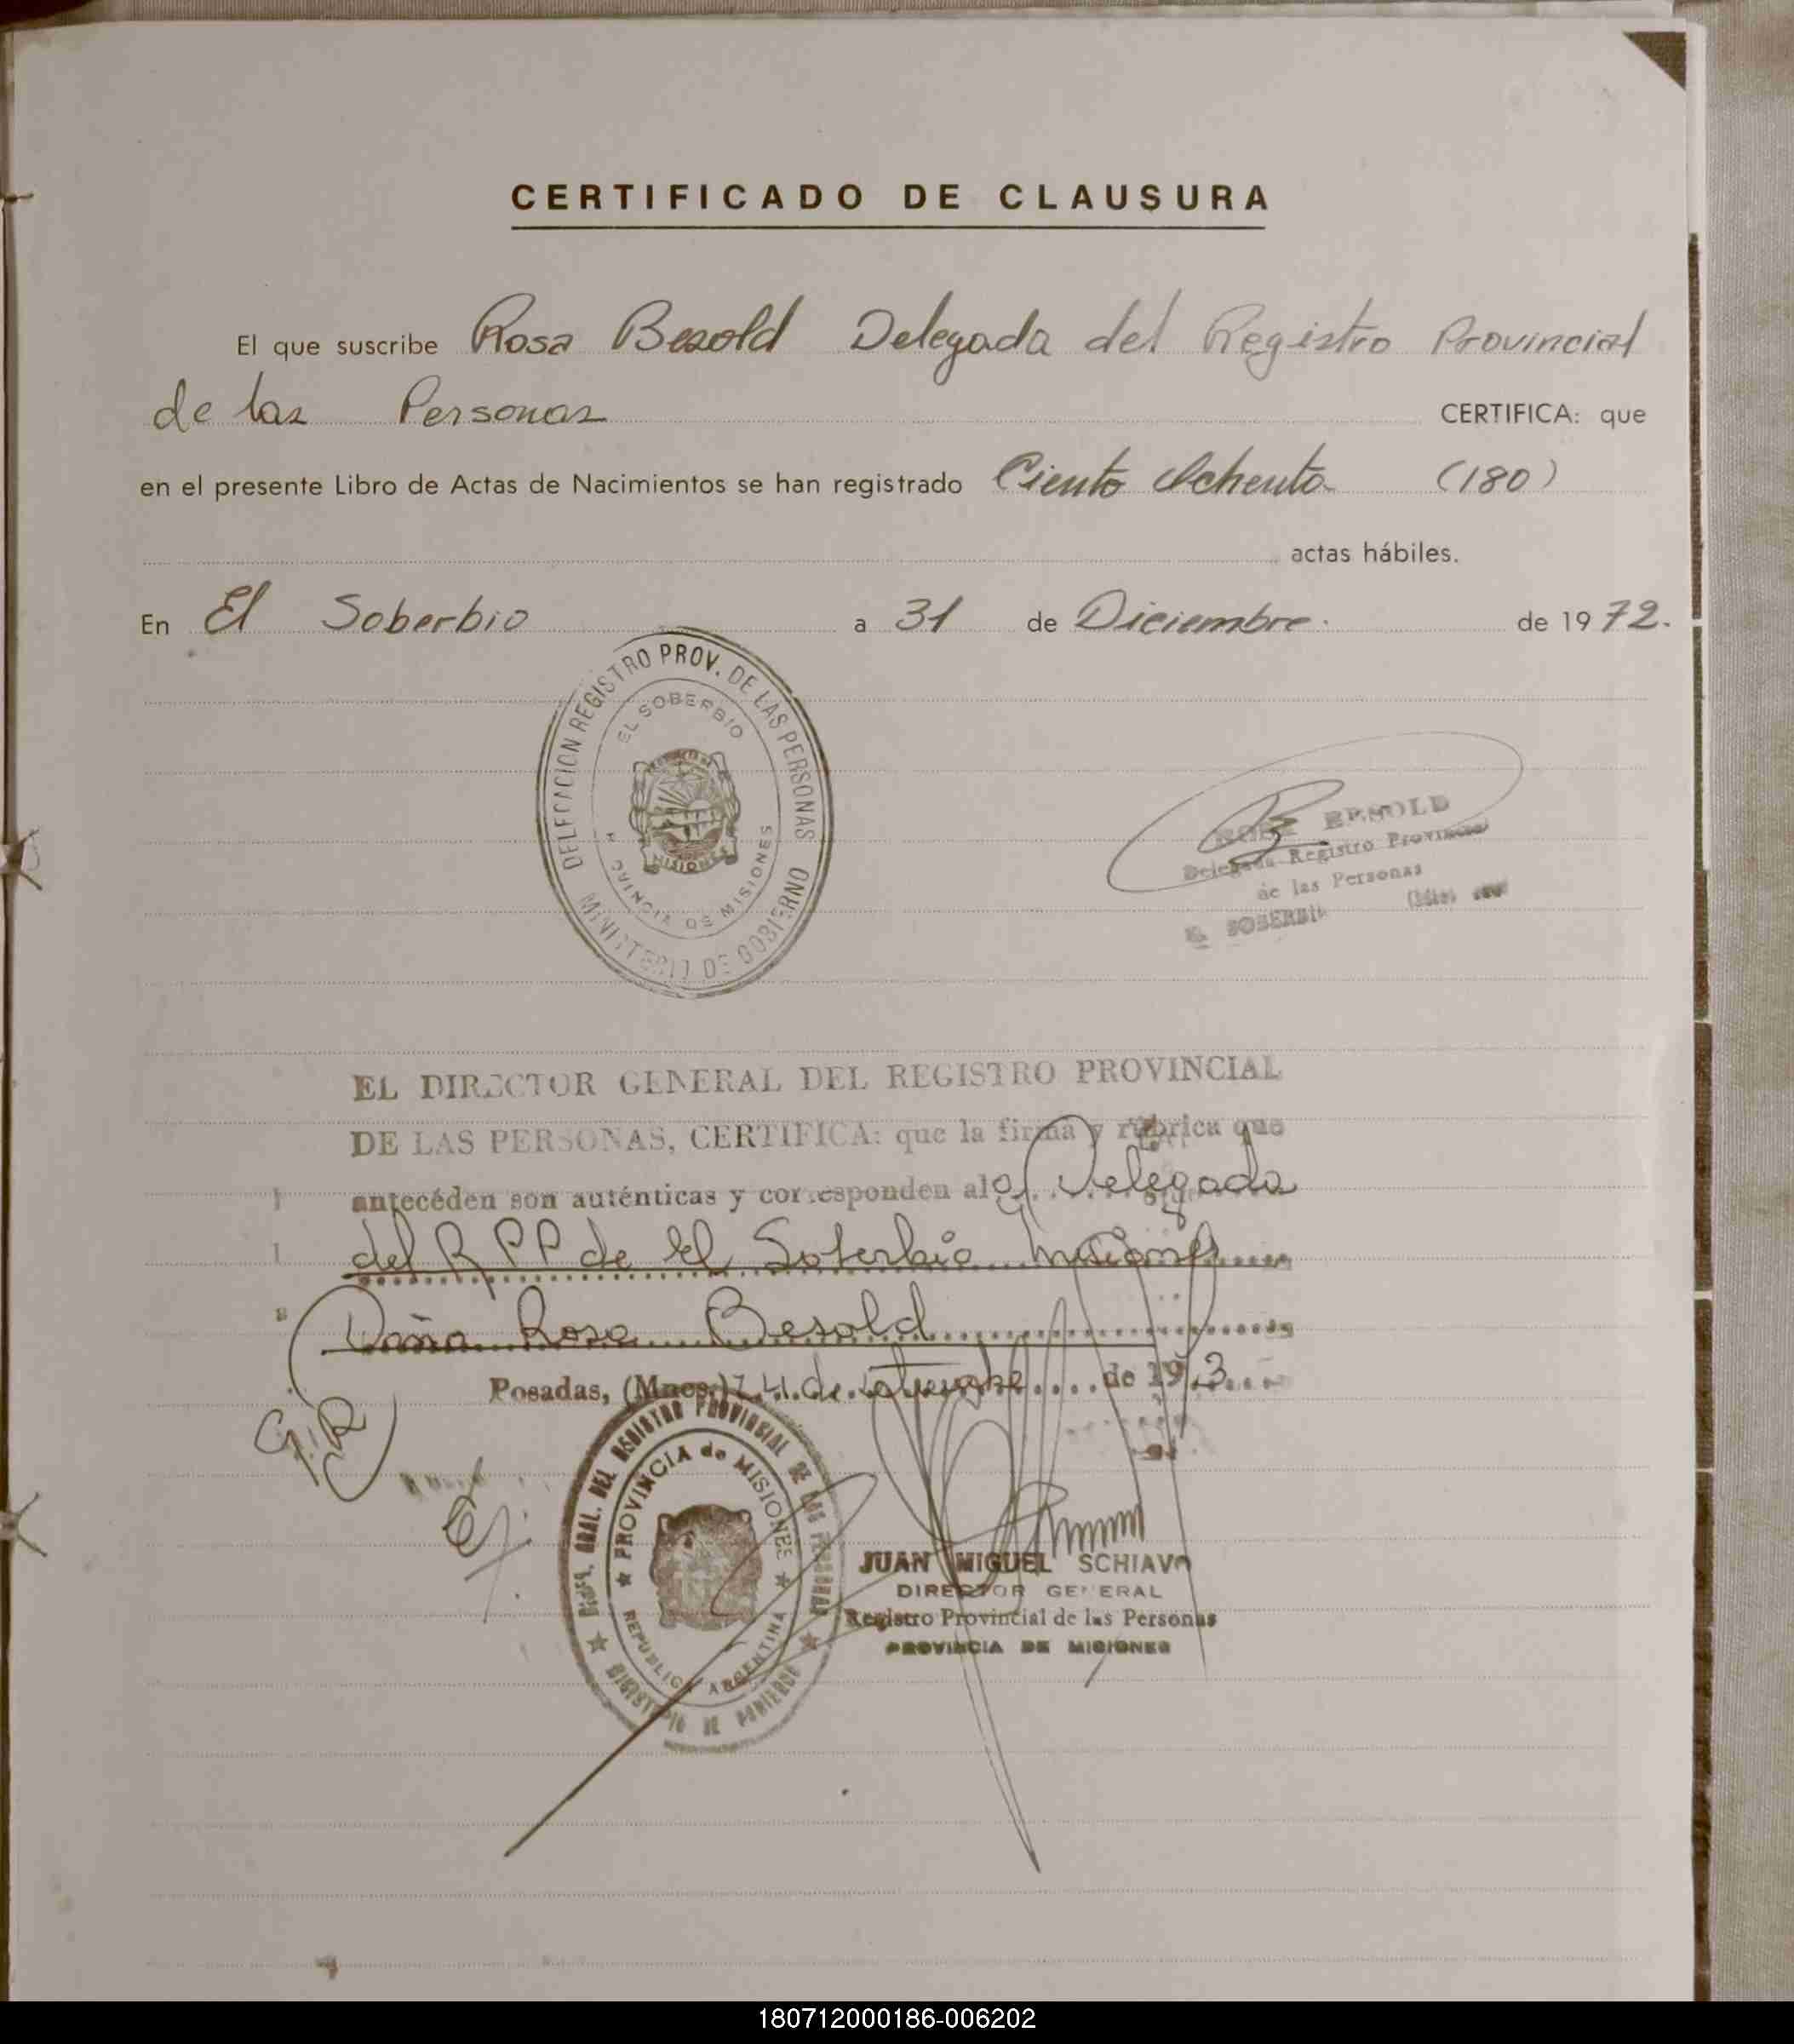 CERTIFICADO DE CLAUSURA
El que suscribe Rosa Besold Delegada del Registro Provincial
de las Personas CERTIFICA: que
en el presente Libro de Actas de Nacimientos se han registrado Ciento Ochenta (180)
actas hábiles.
En El Soberbio a 31 de Diciembre de 1972.
DELEGACION REGISTRO PROV. DE LAS PERSONAS
EL SOBERBIO
MISIONES
PROVINCIA DE MISIONES
MINISTERIO DE GOBIERNO
ROSA BESOLD
Delegada Registro Provincial
de las Personas
EL SOBERBIO
EL DIRECTOR GENERAL DEL REGISTRO PROVINCIAL
DE LAS PERSONAS, CERTIFICA: que la firma y rúbrica que
antecéden son auténticas y corresponden al a Delegada
del R P P de El Soberbio Misiones
Doña Rosa Besold
Posadas, (Mnes.) de de 19 3
DIREC. GRAL. DEL REGISTRO PROVINCIAL DE LAS PERSONAS
PROVINCIA de MISIONES
REPUBLICA ARGENTINA
MINISTERIO DE GOBIERNO
JUAN MIGUEL SCHIAVO
DIRECTOR GENERAL
Registro Provincial de las Personas
PROVINCIA DE MISIONES
180712000186-006202